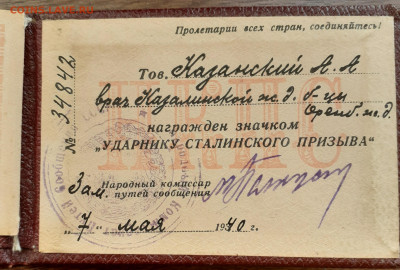 Пролетарии всех стран, соединяйтесь!
№ 34842
Тов. Казанский А. А
врач Казалинской ж. д. б-цы
Оренб. ж. д.
награжден значком
„УДАРНИКУ СТАЛИНСКОГО ПРИЗЫВА“
Зам. Народный комиссар
путей сообщения
"7" мая 1940 г.